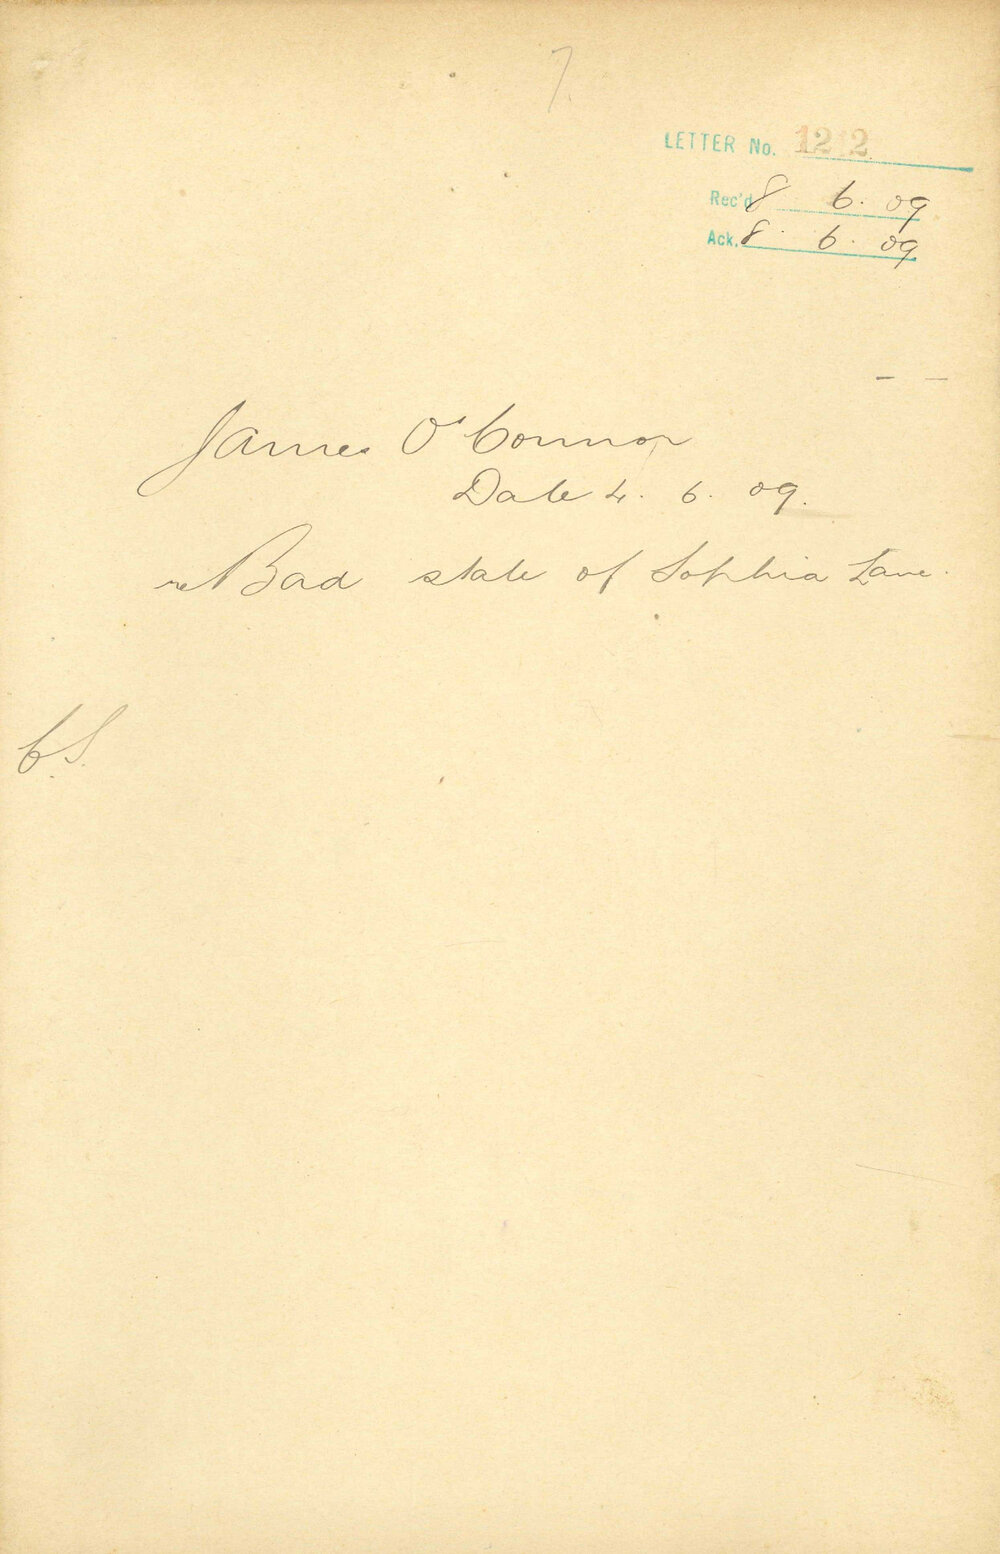 7.
LETTER No. 1212
Rec'd 8 6. 09
Ack. 8. 6. 09
James O'Connor
Date 4. 6. 09.
re Bad state of Sophia Lane.
C.S.